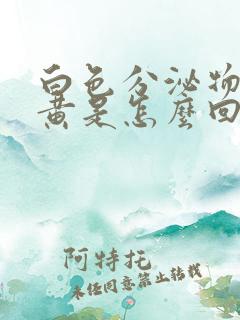 白色分泌物
黄是怎麼回
阿特托
未经同意禁止转载